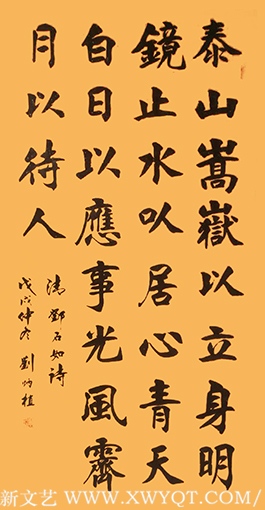 泰山嵩嶽以立身明
鏡止水以居心青天
白日以應事光風霽
月以待人
清鄧石如詩
戊戌仲冬 劉炳植
新文艺 WWW.XWYQT.COM/